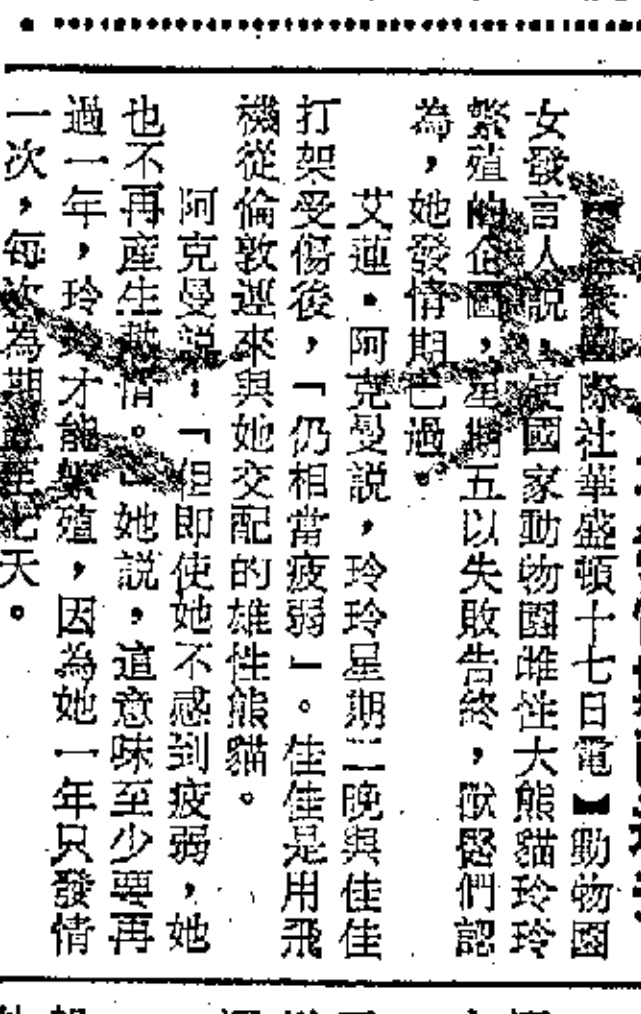 國際社華盛頓十七日電】動物園
女發言人說，使國家動物園雌性大熊貓玲玲
繁殖的企圖，星期五以失敗告終，獸醫們認
為，她發情期已過。
艾蓮·阿克曼說，玲玲星期二晚與佳佳
打架受傷後，「仍相當疲弱」。佳佳是用飛
機從倫敦運來與她交配的雄性熊貓。
阿克曼說：「但即使她不感到疲弱，她
也不再產生激情。」她說，這意味至少要再
過一年，玲玲才能繁殖，因為她一年只發情
一次，每次為期 至七天。